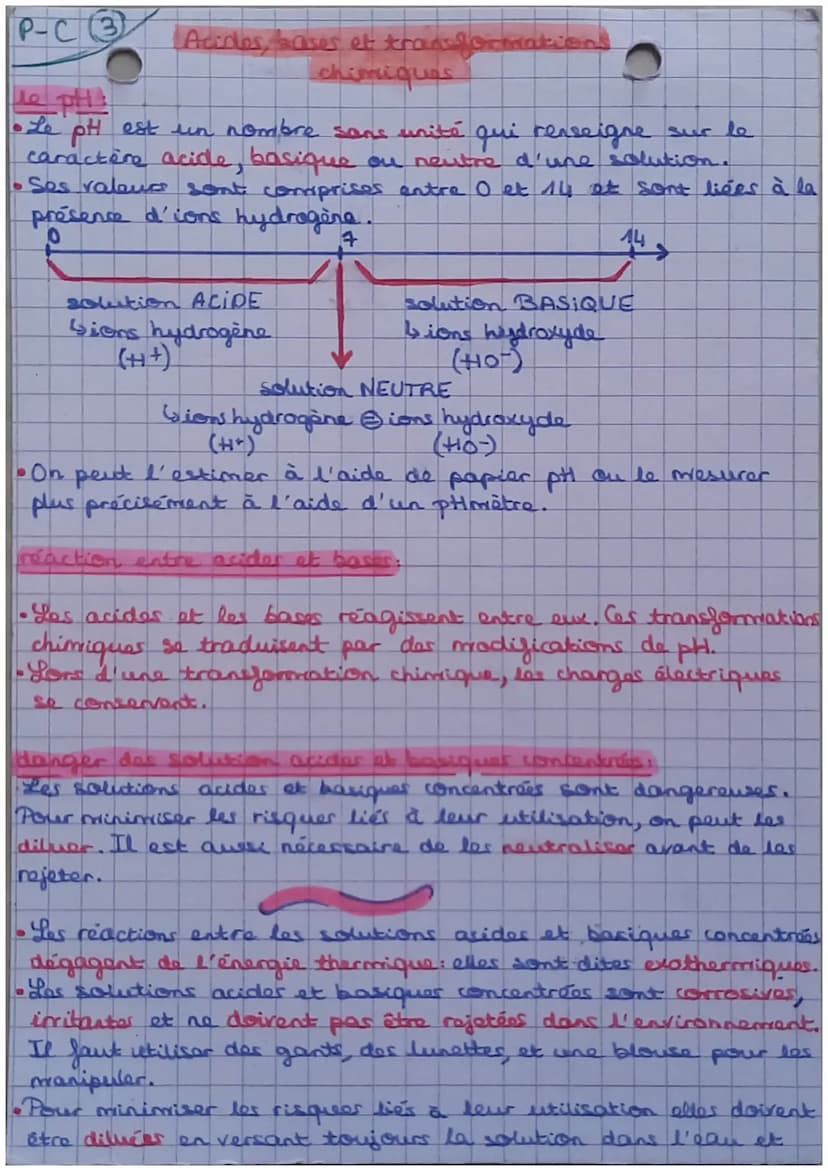 P-C ③
Acides, bases et transformations
chimiques
le pH:
• Le pH est un nombre sans unité qui renseigne sur le
caractère acide, basique ou neutre d'une solution.
• Ses valeurs sont comprises entre 0 et 14 et sont liées à la
présence d'ions hydrogène.
0 7 14
solution ACIDE solution BASIQUE
↳ ions hydrogène ↳ ions hydroxyde
(H+) (HO-)
solution NEUTRE
↳ ions hydrogène = ions hydroxyde
(H+) (HO-)
• On peut l'estimer à l'aide de papier pH ou le mesurer
plus précisément à l'aide d'un pHmètre.
réaction entre acides et bases:
• Les acides et les bases réagissent entre eux. Ces transformations
chimiques se traduisent par des modifications de pH.
• Lors d'une transformation chimique, les charges électriques
se conservent.
danger des solution acides et basiques concentrées:
Les solutions acides et basiques concentrées sont dangereuses.
Pour minimiser les risques liés à leur utilisation, on peut les
diluer. Il est aussi nécessaire de les neutraliser avant de les
rejeter.
• Les réactions entre les solutions acides et basiques concentrées
dégagent de l'énergie thermique: elles sont dites exothermiques.
• Les solutions acides et basiques concentrées sont corrosives,
irritantes et ne doivent pas être rejetées dans l'environnement.
Il faut utiliser des gants, des lunettes, et une blouse pour les
manipuler.
• Pour minimiser les risques liés à leur utilisation elles doivent
être diluées en versant toujours la solution dans l'eau et